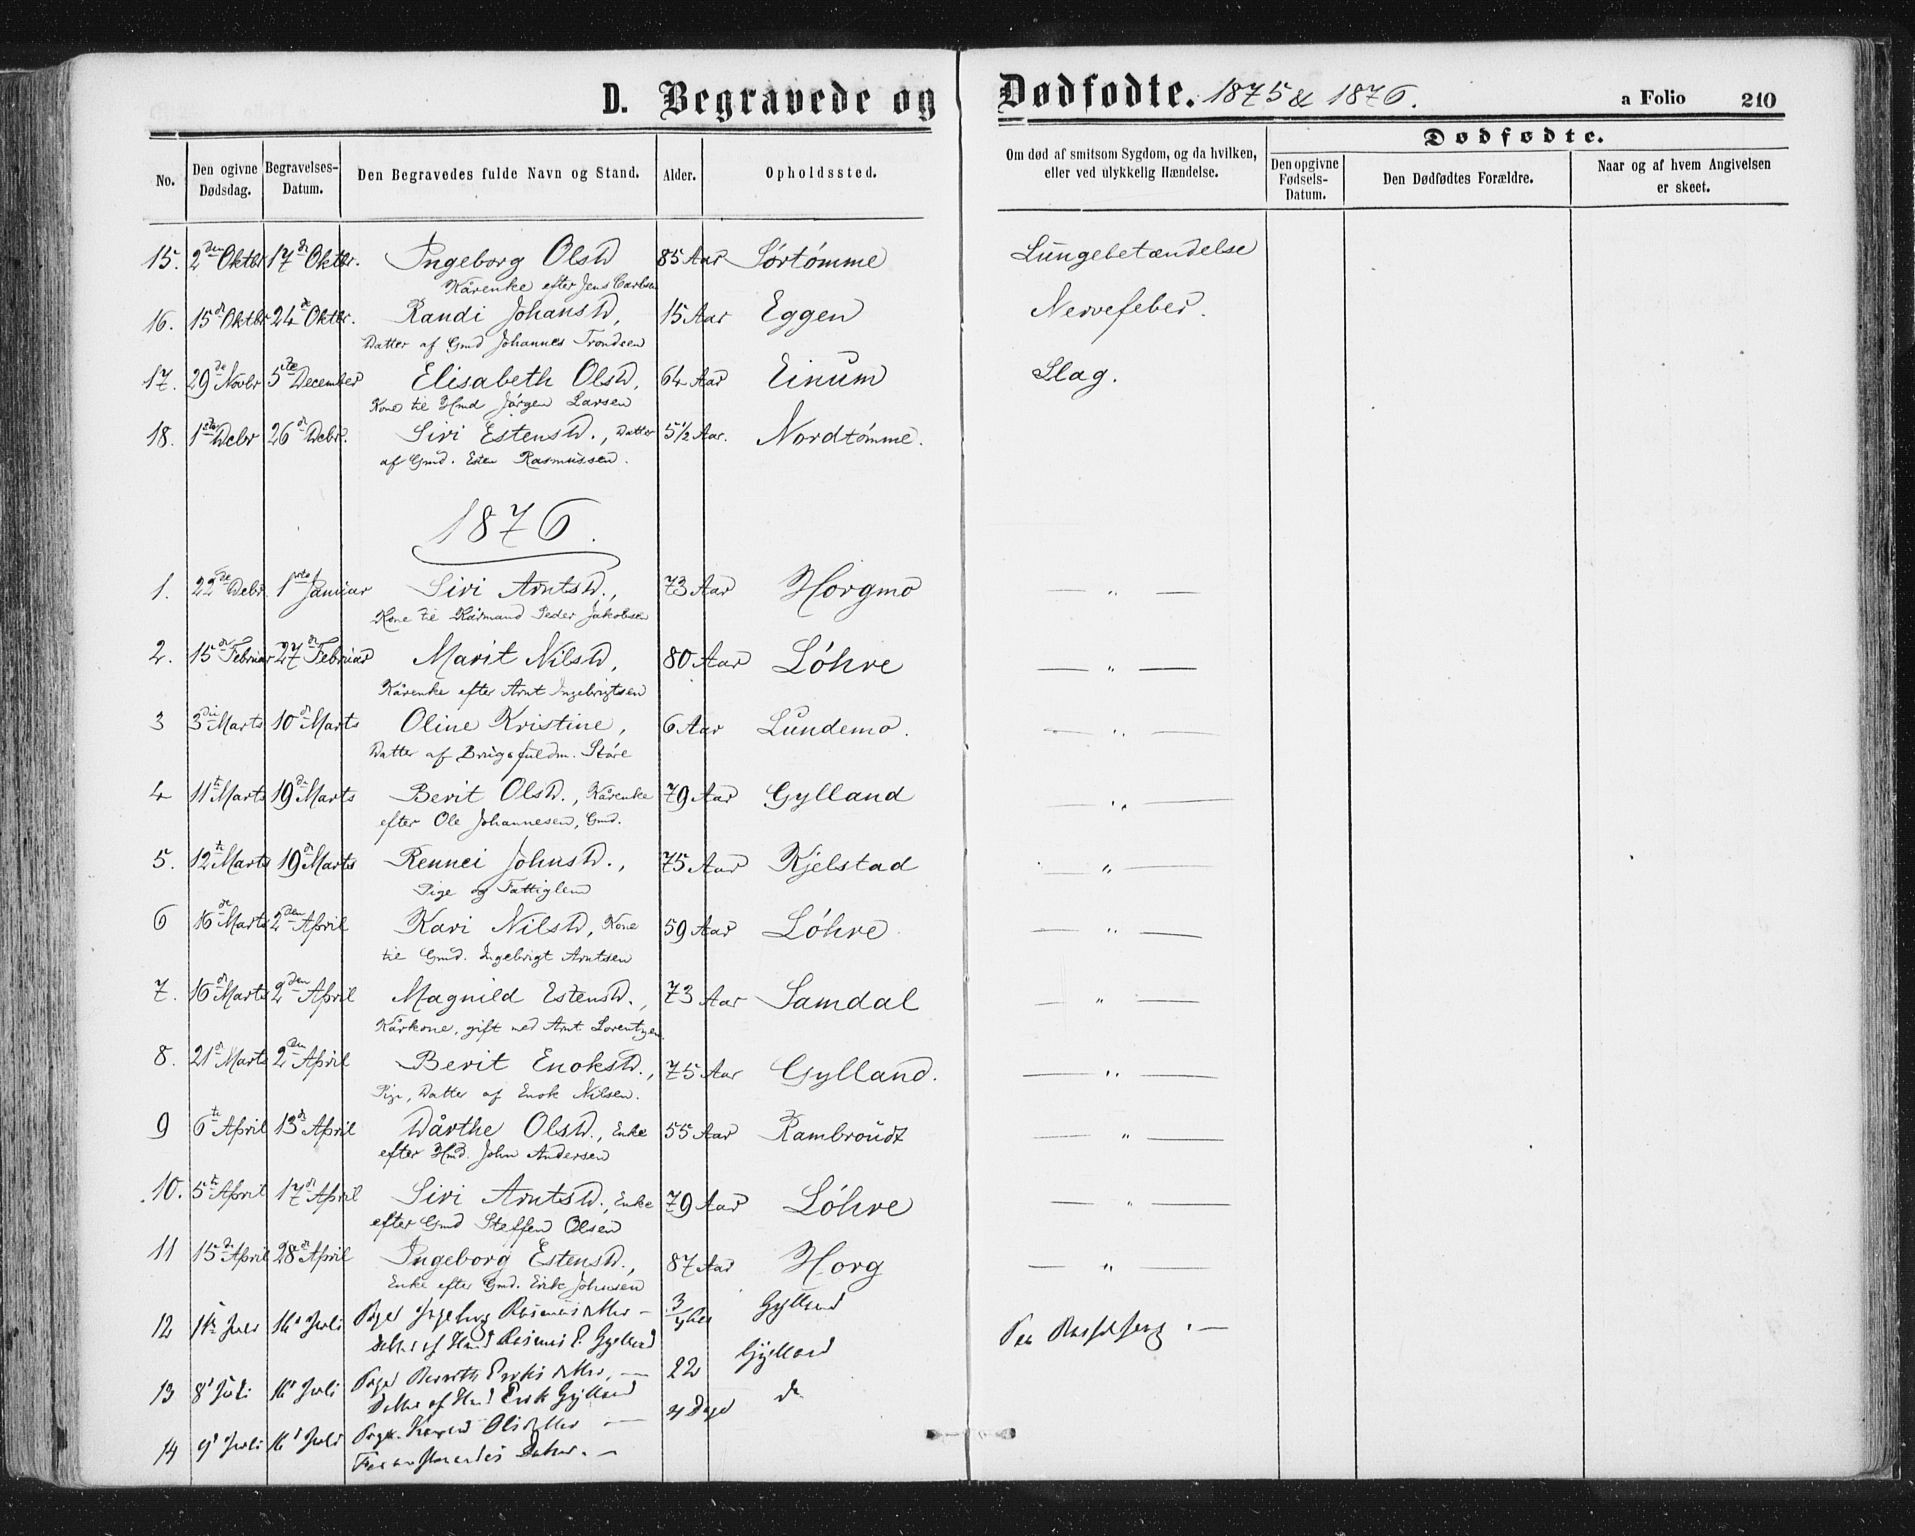 D. Begravede og Dødfødte. 1875 & 1876. a Folio 210
No. | Den ogivne Dødsdag. | Begravelses-Datum. | Den Begravedes fulde Navn og Stand. | Alder. | Opholdssted. | Om død af smitsom Sygdom, og da hvilken, eller ved ulykkelig Hændelse. | Dødfødte. | Den opgivne Fødsels-Datum. | Den Dødfødtes Forældre. | Naar og af hvem Angivelsen er skeet.
15. 2den Oktbr 17de Oktbr. Ingeborg Olsd 85 Aar Sørtømme Lungebetændelse
Kårenke efter Jens Carlsen
16. 15de Oktbr 24de Oktbr. Randi Johansd, 15 Aar Eggen Nervefeber.
Datter af Gmd Johannes Trondsen
17. 29de Novbr 5te December Elisabeth Olsd, 64 Aar Einum Slag.
Kone til Hmd Jørgen Larsen
18. 1ste Debr 26de Debr. Siri Estensd., Datter 5½ Aar. Nordtømme.
af Gmd. Esten Rasmussen.
1876.
1. 22de Debr. 1ste Januar Siri Arntsd., 73 Aar Horgmo — " —
Kone til Kårmand Peder Jakobsen
2. 15de Februar 27de Februar Marit Nilsd, 80 Aar Löhre — " —
Kårenke efter Arnt Ingebrigtsen
3 3die Marts 10de Marts Oline Kristine, 6 Aar Lundemo. — " —
Datter af Brugsfuldm. Støre
4 11te Marts 19de Marts Berit Olsd., Kårenke 79 Aar Gylland — " —
efter Ole Johannesen, Gmd.
5. 12te Marts 19de Marts Rennei Johnsd., 75 Aar Kjelstad — " —
Pige og Fattiglem
6 16de Marts 2den April Kari Nilsd, Kone 59 Aar Löhre — " —
til Gmd. Ingebrigt Arntsen
7. 16de Marts 2den April Magnild Estensd., 73 Aar Samdal — " —
Kårkone, gift med Arnt Lorentzen
8. 21de Marts 2den April Berit Enoksd., 75 Aar Gylland. — " —
Pige, Datter af Enok Nilsen.
9 6te April 13de April Dårthe Olsd., Enke 55 Aar Kambroudt — " —
efter Hmd. John Andersen
10. 5te April 17de April Siri Arntsd., Enke 79 Aar Löhre — " —
efter Gmd Steffen Olsen
11 15de April 28de April Ingeborg Estensd., 87 Aar Horg — " —
Enke efter Gmd. Erik Johnsen
12 Juli 16d Juli Pige Ingeborg Gylland
Datter af Rasmus E. Gylland
13 8d Juli 16d Juli Pige 22 Gylland
Datter af Erik Gylland
14 9d Juli 16d Juli Pige 4 Dage do